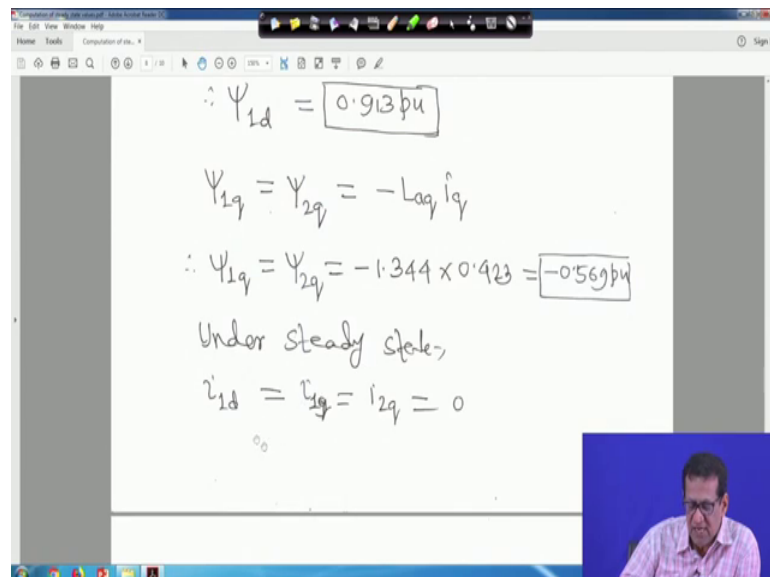 Computation of steady state values.pdf - Adobe Acrobat Reader DC
File Edit View Window Help
Home Tools Computation of ste... × Sign
∴ Ψ1d = 0.913 pu
Ψ1q = Ψ2q = - Laq iq
∴ Ψ1q = Ψ2q = -1.344 × 0.423 = -0.569 pu
Under steady state,
i1d = i1q = i2q = 0